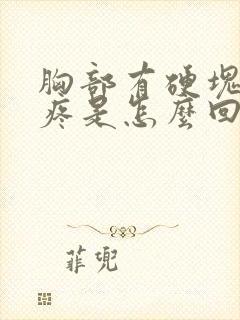 胸部有硬塊
疼是怎麼回
菲兜